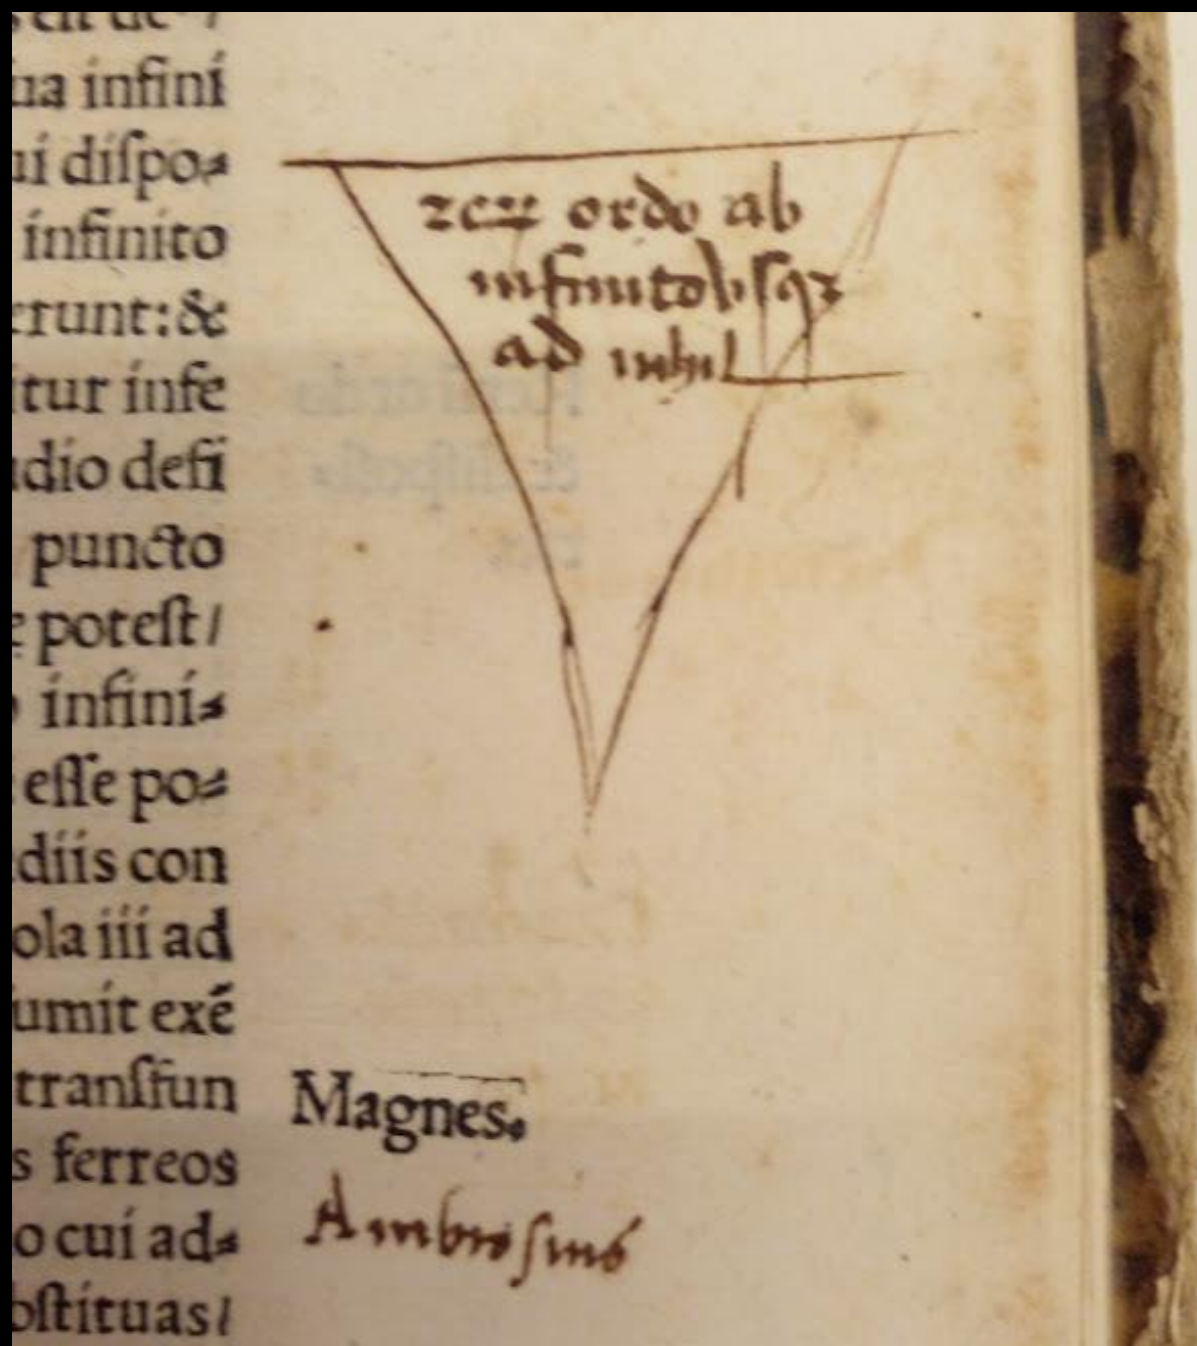 ua infini
ui diſpo⸗
infinito
erunt:&
itur infe
udio defi
puncto
e poteſt/
infini⸗
eſſe po⸗
ediis con
ola iii ad
umit exē
tranſfun
s ferreos
o cui ad⸗
oſtituas/
ordo ab
infinito vſqꝫ
ad nihil
Magnes.
Ambroſius